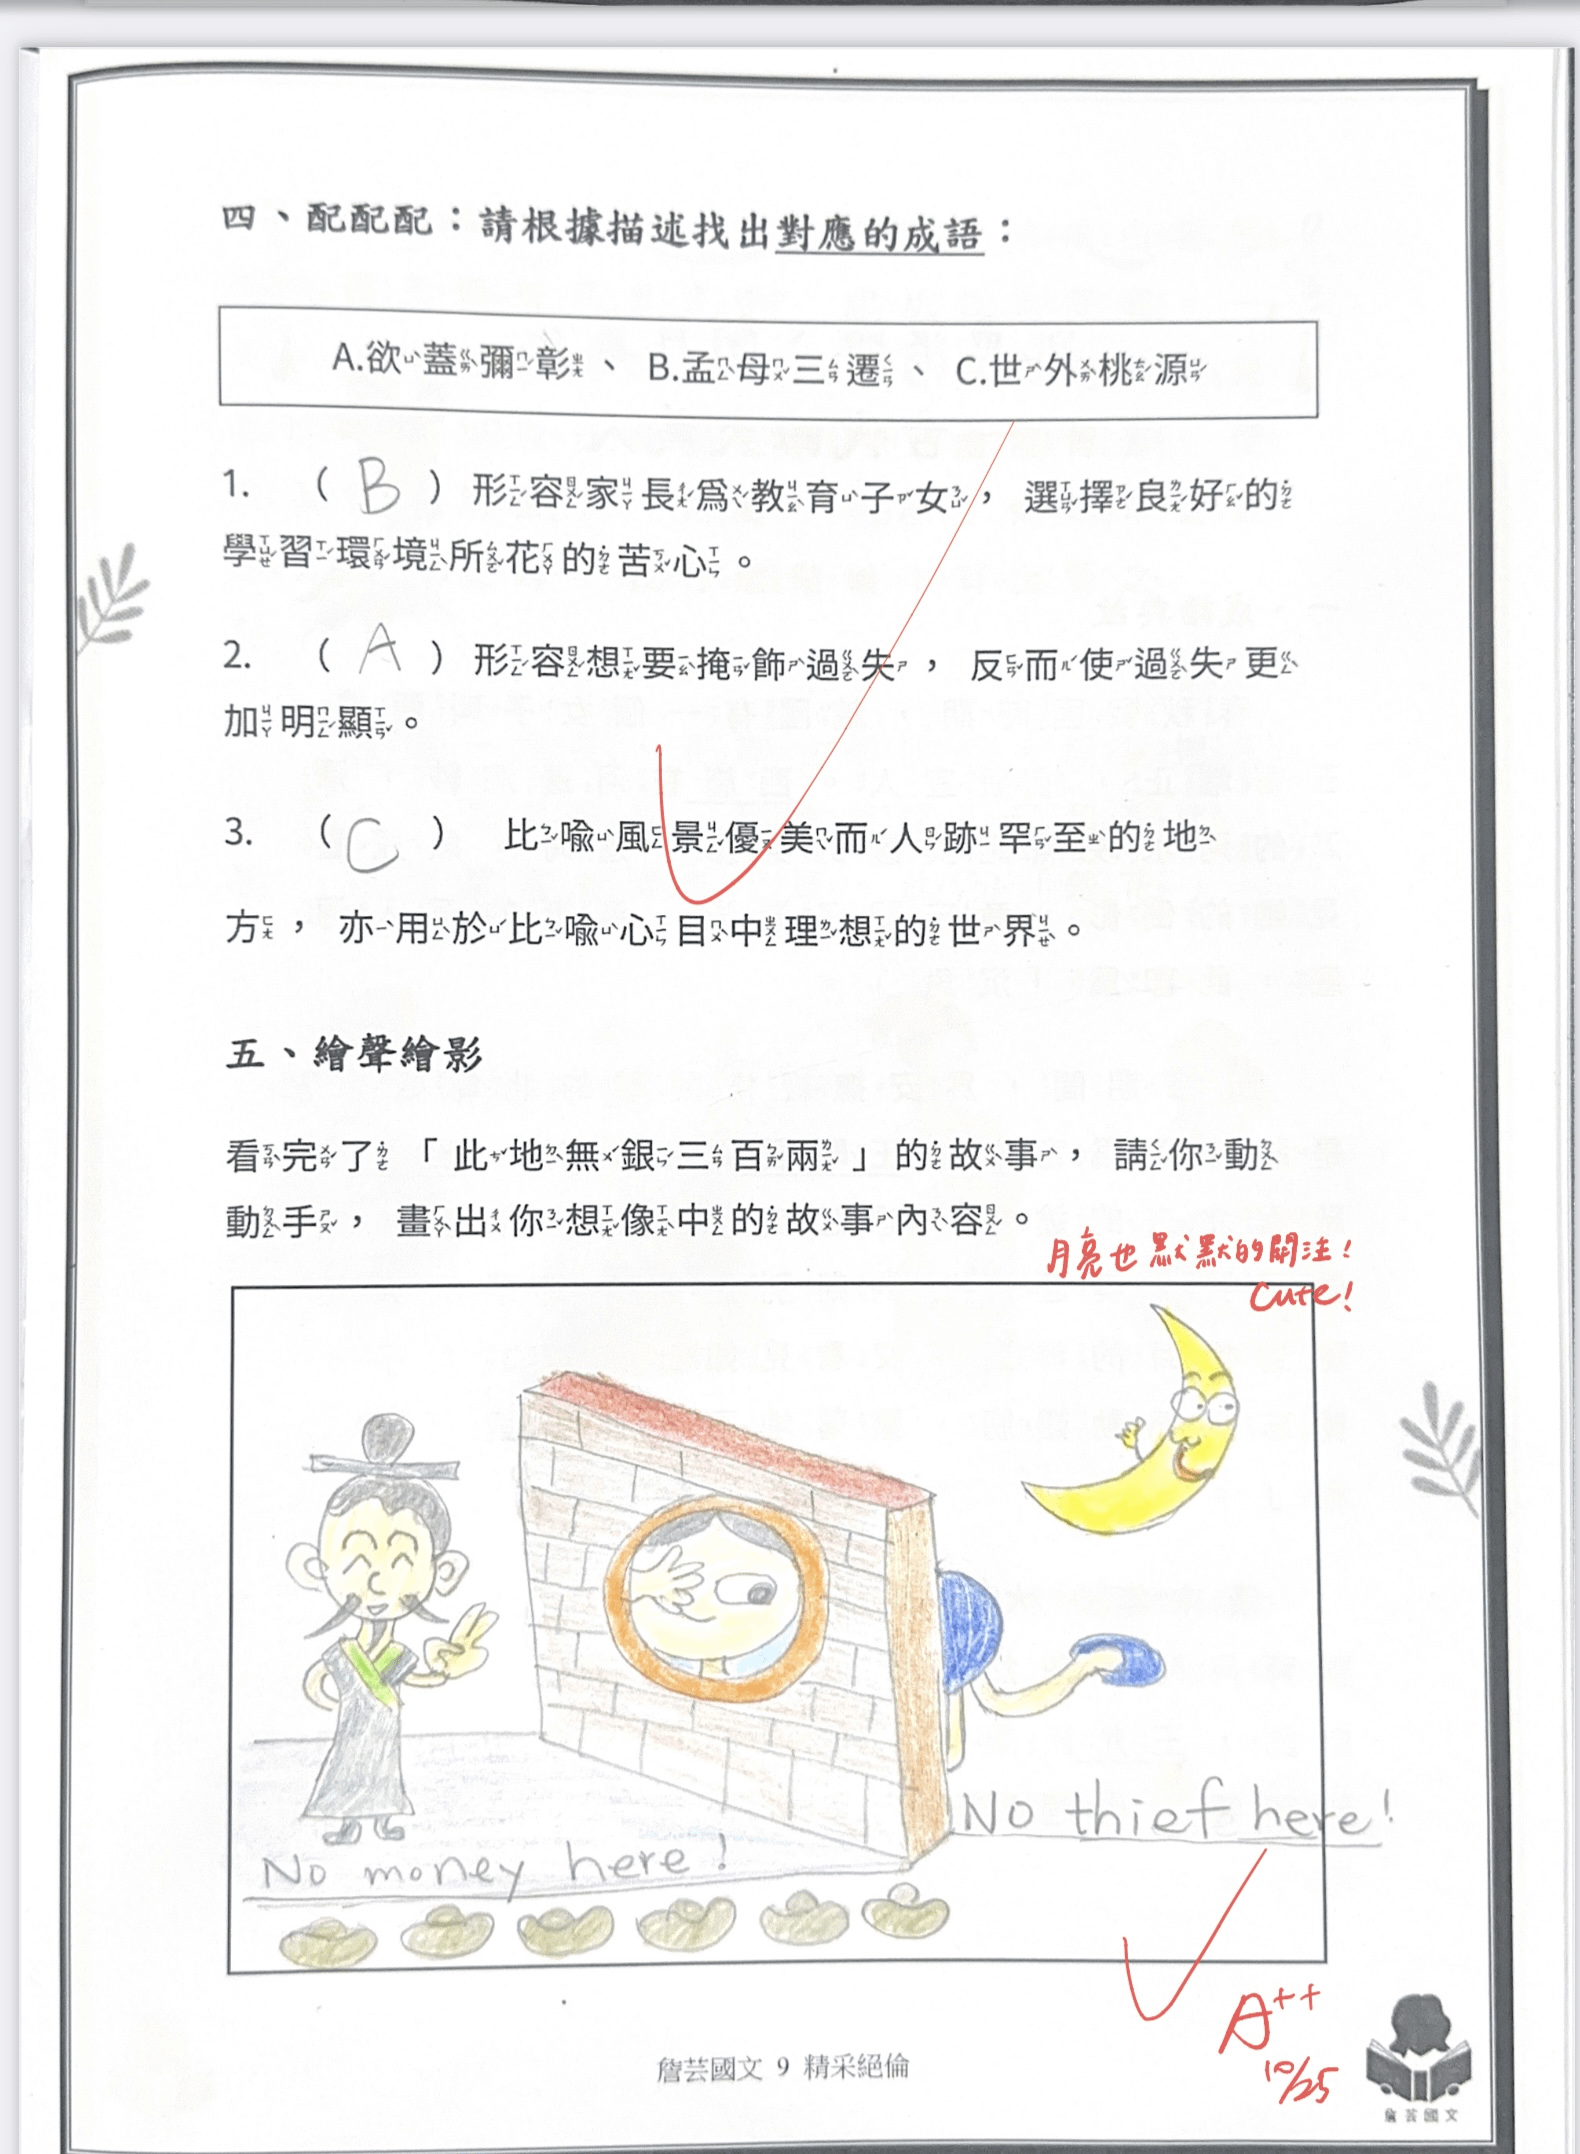 四、配配配：請根據描述找出對應的成語：
A.欲蓋彌彰、 B.孟母三遷、 C.世外桃源
1. （ B ）形容家長為教育子女，選擇良好的
學習環境所花的苦心。
2. （ A ）形容想要掩飾過失，反而使過失更
加明顯。
3. （ C ） 比喻風景優美而人跡罕至的地
方，亦用於比喻心目中理想的世界。
五、繪聲繪影
看完了「此地無銀三百兩」的故事，請你動
動手，畫出你想像中的故事內容。
月亮也默默的關注！
Cute!
No thief here!
No money here!
A++
10/25
詹芸國文 9 精采絕倫
詹芸國文